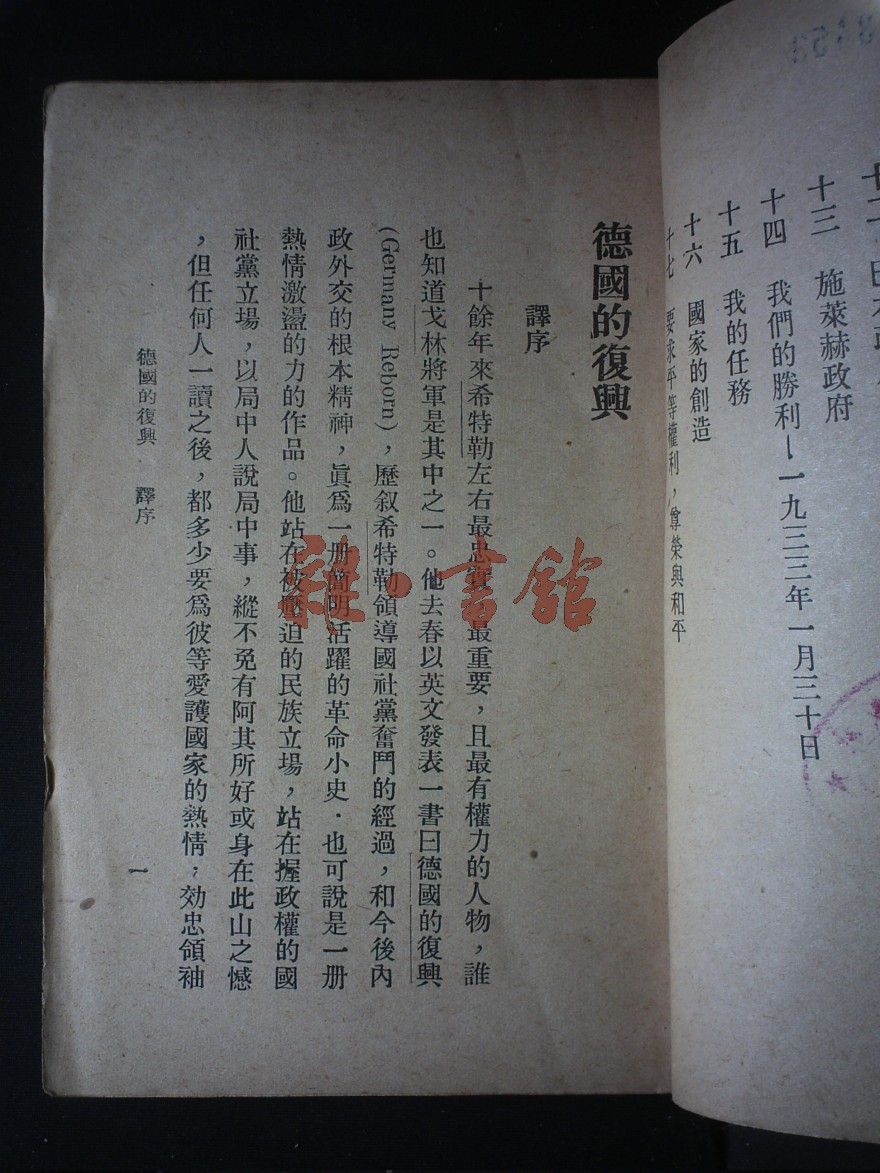 十三 施萊赫政府
十四 我們的勝利—一九三三年一月三十日
十五 我的任務
十六 國家的創造
十七 要求平等權利，尊榮與和平
德國的復興
譯序
十餘年來希特勒左右最忠實，最重要，且最有權力的人物，誰
也知道戈林將軍是其中之一。他去春以英文發表一書曰德國的復興
(Germany Reborn)，歷叙希特勒領導國社黨奮鬥的經過，和今後內
政外交的根本精神，眞爲一册簡明活躍的革命小史．也可說是一册
熱情激盪的力的作品。他站在被壓迫的民族立場，站在握政權的國
社黨立場，以局中人說局中事，縱不免有阿其所好或身在此山之憾
，但任何人一讀之後，都多少要爲彼等愛護國家的熱情，効忠領袖
德國的復興 譯序
一
雜·書館